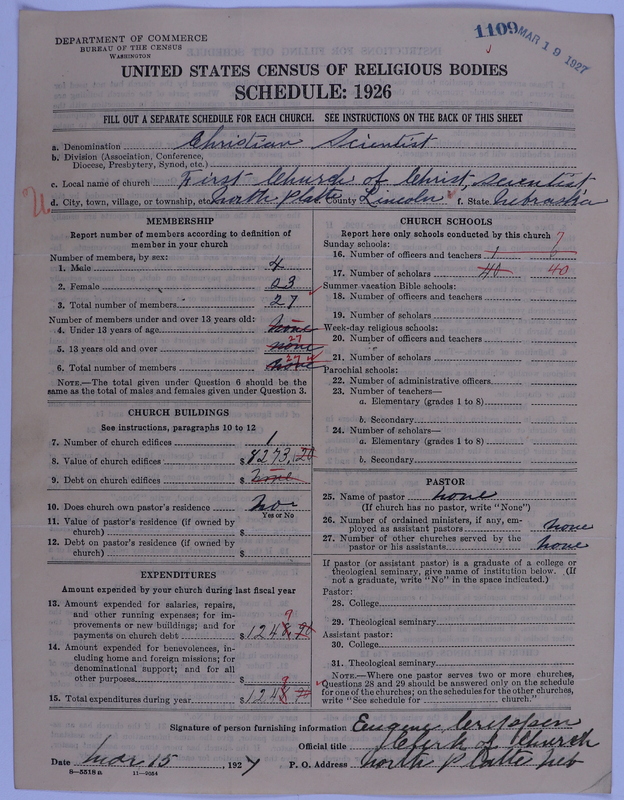 1109 MAR 19 1927
DEPARTMENT OF COMMERCE
BUREAU OF THE CENSUS
WASHINGTON
UNITED STATES CENSUS OF RELIGIOUS BODIES
SCHEDULE: 1926
FILL OUT A SEPARATE SCHEDULE FOR EACH CHURCH. SEE INSTRUCTIONS ON THE BACK OF THIS SHEET
a. Denomination Christian Scientist
b. Division (Association, Conference,
Diocese, Presbytery, Synod, etc.)
c. Local name of church First Church of Christ, Scientist
d. City, town, village, or township, etc. North Platte County Lincoln f. State Nebraska
MEMBERSHIP
Report number of members according to definition of
member in your church
Number of members, by sex:
1. Male 4
2. Female 23
3. Total number of members 27
Number of members under and over 13 years old:
4. Under 13 years of age none
5. 13 years old and over none 27
6. Total number of members none 27
NOTE.—The total given under Question 6 should be the
same as the total of males and females given under Question 3.
CHURCH BUILDINGS
See instructions, paragraphs 10 to 12
7. Number of church edifices 1
8. Value of church edifices $8273.20
9. Debt on church edifices $none
10. Does church own pastor's residence no
Yes or No
11. Value of pastor's residence (if owned by
church) $
12. Debt on pastor's residence (if owned by
church) $
EXPENDITURES
Amount expended by your church during last fiscal year
13. Amount expended for salaries, repairs,
and other running expenses; for im-
provements or new buildings; and for
payments on church debt $1248.70 9
14. Amount expended for benevolences, in-
cluding home and foreign missions; for
denominational support; and for all
other purposes $
15. Total expenditures during year $1248.70 9
CHURCH SCHOOLS
Report here only schools conducted by this church
Sunday schools:
16. Number of officers and teachers 7
17. Number of scholars 40 40
Summer vacation Bible schools:
18. Number of officers and teachers
19. Number of scholars
Week-day religious schools:
20. Number of officers and teachers
21. Number of scholars
Parochial schools:
22. Number of administrative officers
23. Number of teachers—
a. Elementary (grades 1 to 8)
b. Secondary
24. Number of scholars—
a. Elementary (grades 1 to 8)
b. Secondary
PASTOR
25. Name of pastor none
(If church has no pastor, write "None")
26. Number of ordained ministers, if any, em-
ployed as assistant pastors none
27. Number of other churches served by the
pastor or his assistants none
If pastor (or assistant pastor) is a graduate of a college or
theological seminary, give name of institution below. (If
not a graduate, write "No" in the space indicated.)
Pastor:
28. College
29. Theological seminary
Assistant pastor:
30. College
31. Theological seminary
NOTE.—Where one pastor serves two or more churches,
Questions 28 and 29 should be answered only on the schedule
for one of the churches; on the schedules for the other churches,
write "See schedule for church."
Signature of person furnishing information Eugene Crippen
Official title Clerk of Church
Date Mar 15, 1927 P. O. Address North Platte Neb
8—5518 a 11—9054